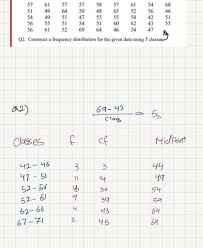 57 61 57 57 58 57 61 54 68
51 49 64 50 48 65 52 56 46
54 49 51 47 55 55 54 42 51
56 55 51 54 51 60 62 43 55
56 61 52 69 64 46 54 47
Q2. Construct a frequency distribution for the given data using 5 classes
Q2)
69-42 = 5
Class
Classes f Cf MidPoint
42-46 3 3 44
47-51 11 14 49
52-56 16 30 54
57-61 9 39 59
62-66 4 43 64
67-71 2 45 69